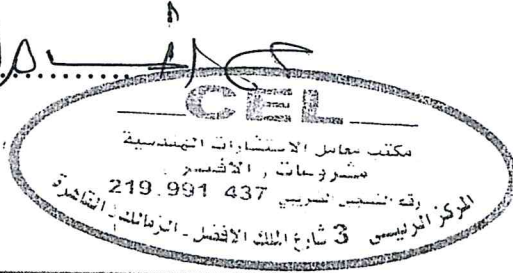 CEL
مكتب معامل الاستشارات الهندسية
مشروعات
رقم التسجيل الضريبي 437 991 219
المركز الرئيسى 3 شارع الملك الافضل - الزمالك - القاهرة